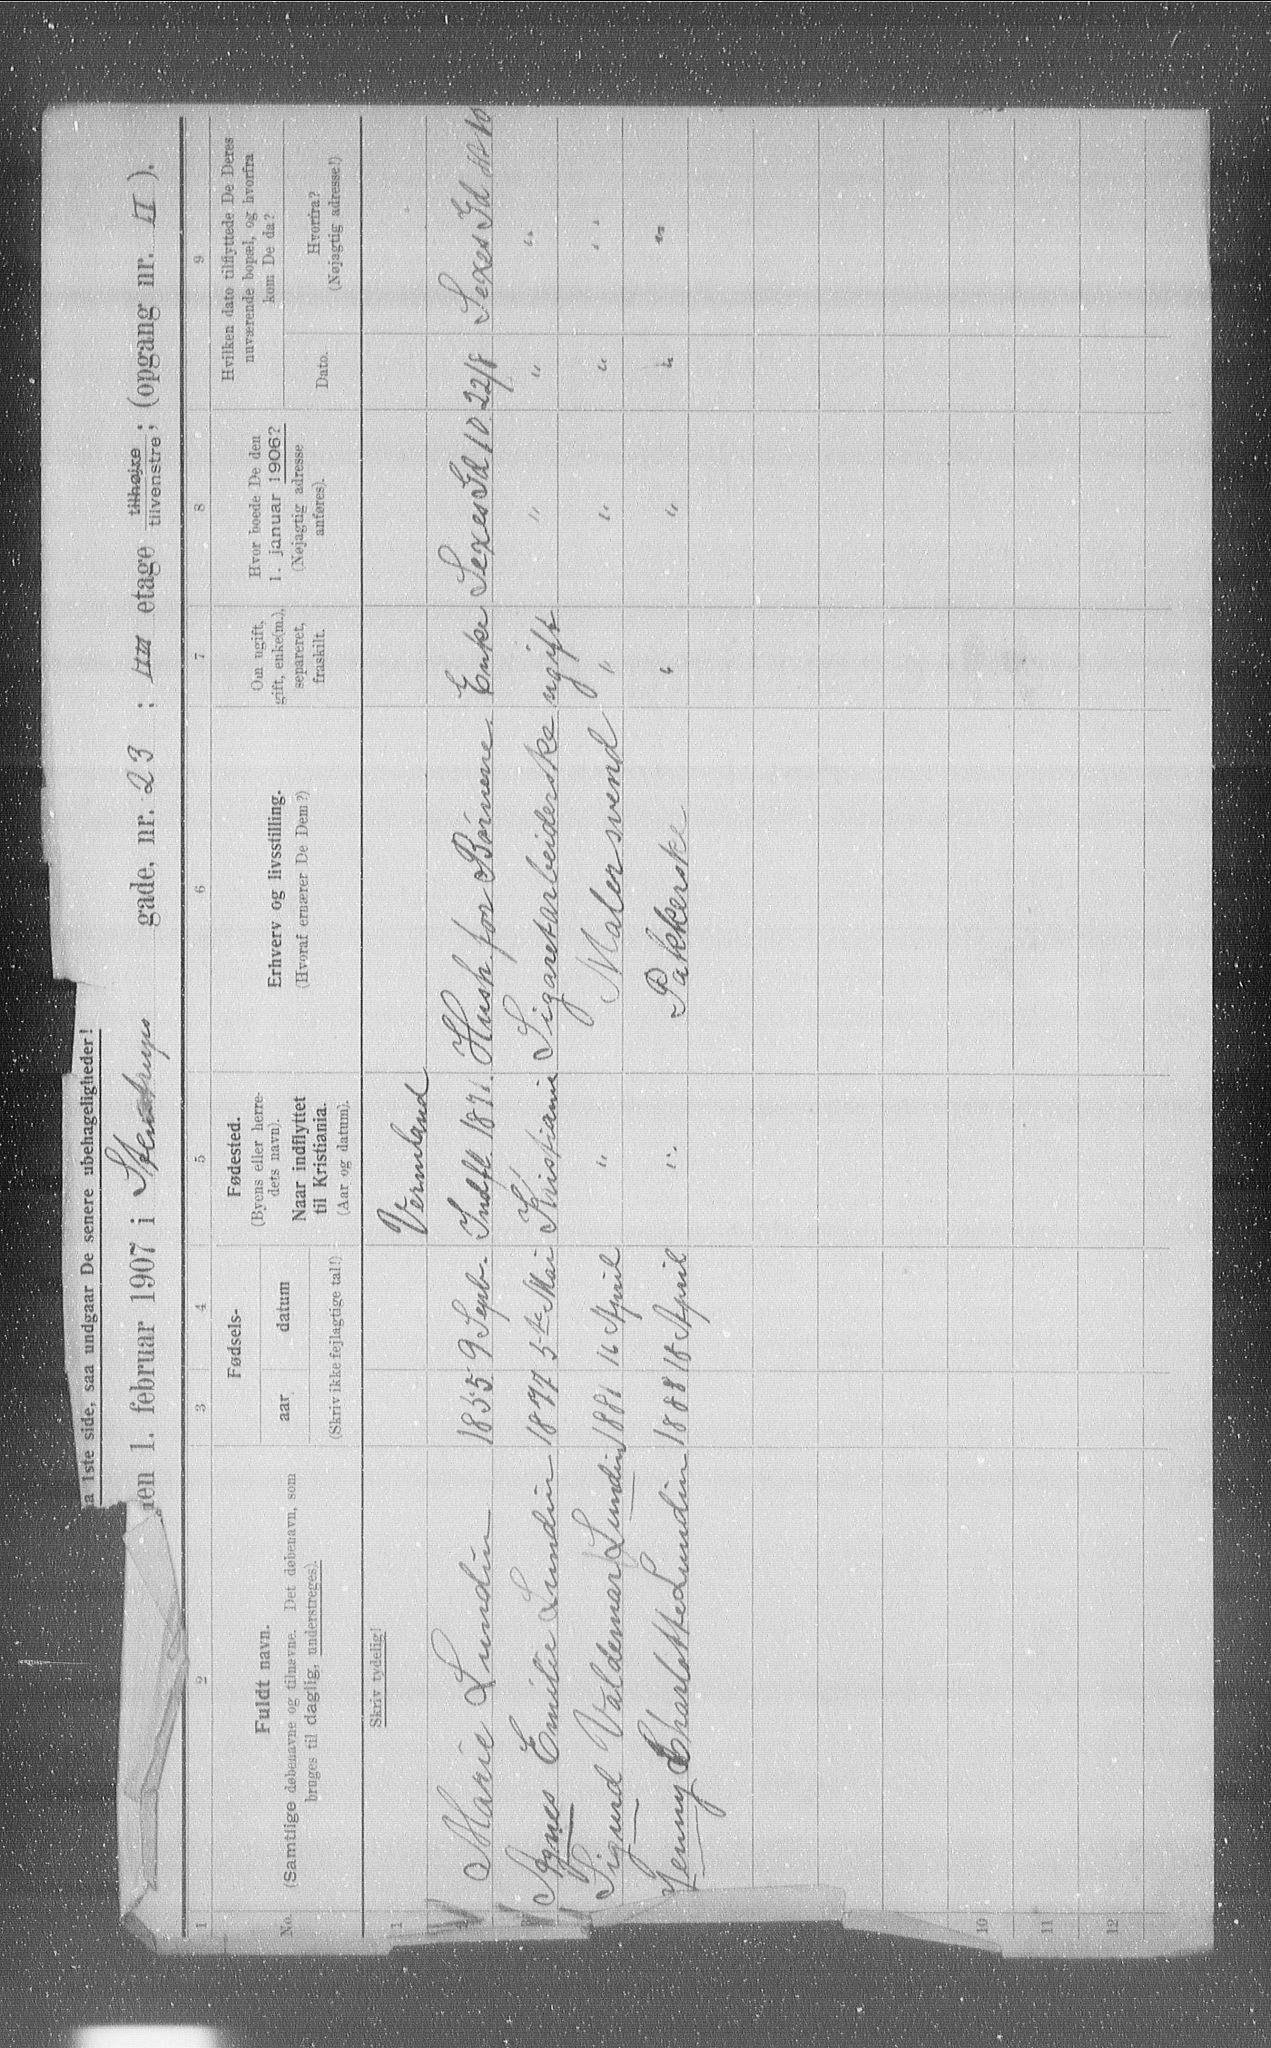 a 1ste side, saa undgaar De senere ubehageligheder!
en 1. februar 1907 i Stenstrups gade, nr. 23 ; III etage tilhøjre tilvenstre; (opgang nr. II ).
1 2 3 4 5 6 7 8 9
No.
Fuldt navn.
(Samtlige døbenavne og tilnavne. Det døbenavn, som
bruges til daglig, understreges).
Fødsels-
aar datum
(Skriv ikke fejlagtige tal!)
Fødested.
(Byens eller herre-
dets navn).
Naar indflyttet
til Kristiania.
(Aar og datum).
Erhverv og livsstilling.
(Hvoraf ernærer De Dem?)
Om ugift,
gift, enke(m.),
separeret,
fraskilt.
Hvor boede De den
1. januar 1906?
(Nøjagtig adresse
anføres).
Hvilken dato tilflyttede De Deres
nuværende bopæl, og hvorfra
kom De da?
Dato.
Hvorfra?
(Nøjagtig adresse!)
Skriv tydelig!
1 Vermland
Marie Lundin 1855 9 Septb. Indfl. 1871. Hush. for Børnene. Enke Sexes Gd 10. 22/8 Sexes Gd № 10
Agnes Emilie Lundin 1877 5te Mai Kristiania Sigaretarbeiderske ugift " " "
Sigurd Valdemar Lundin 1881 16 April " Malersvend " " " "
Jenny Charlotte Lundin 1888 18 April " Pakkerske " " " "
10
11
12